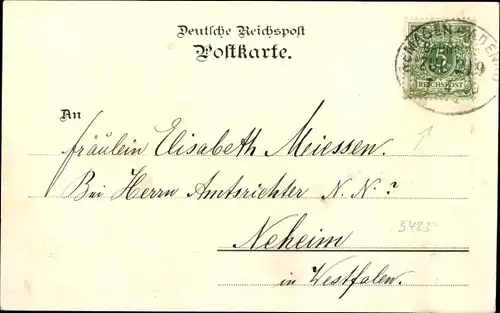 Deutsche Reichspost
Postkarte.
REICHSPOST
An
Fräulein Elisabeth Meiessen.
Bei Herrn Amtsrichter N. N.?
5483
Neheim
in Westfalen.